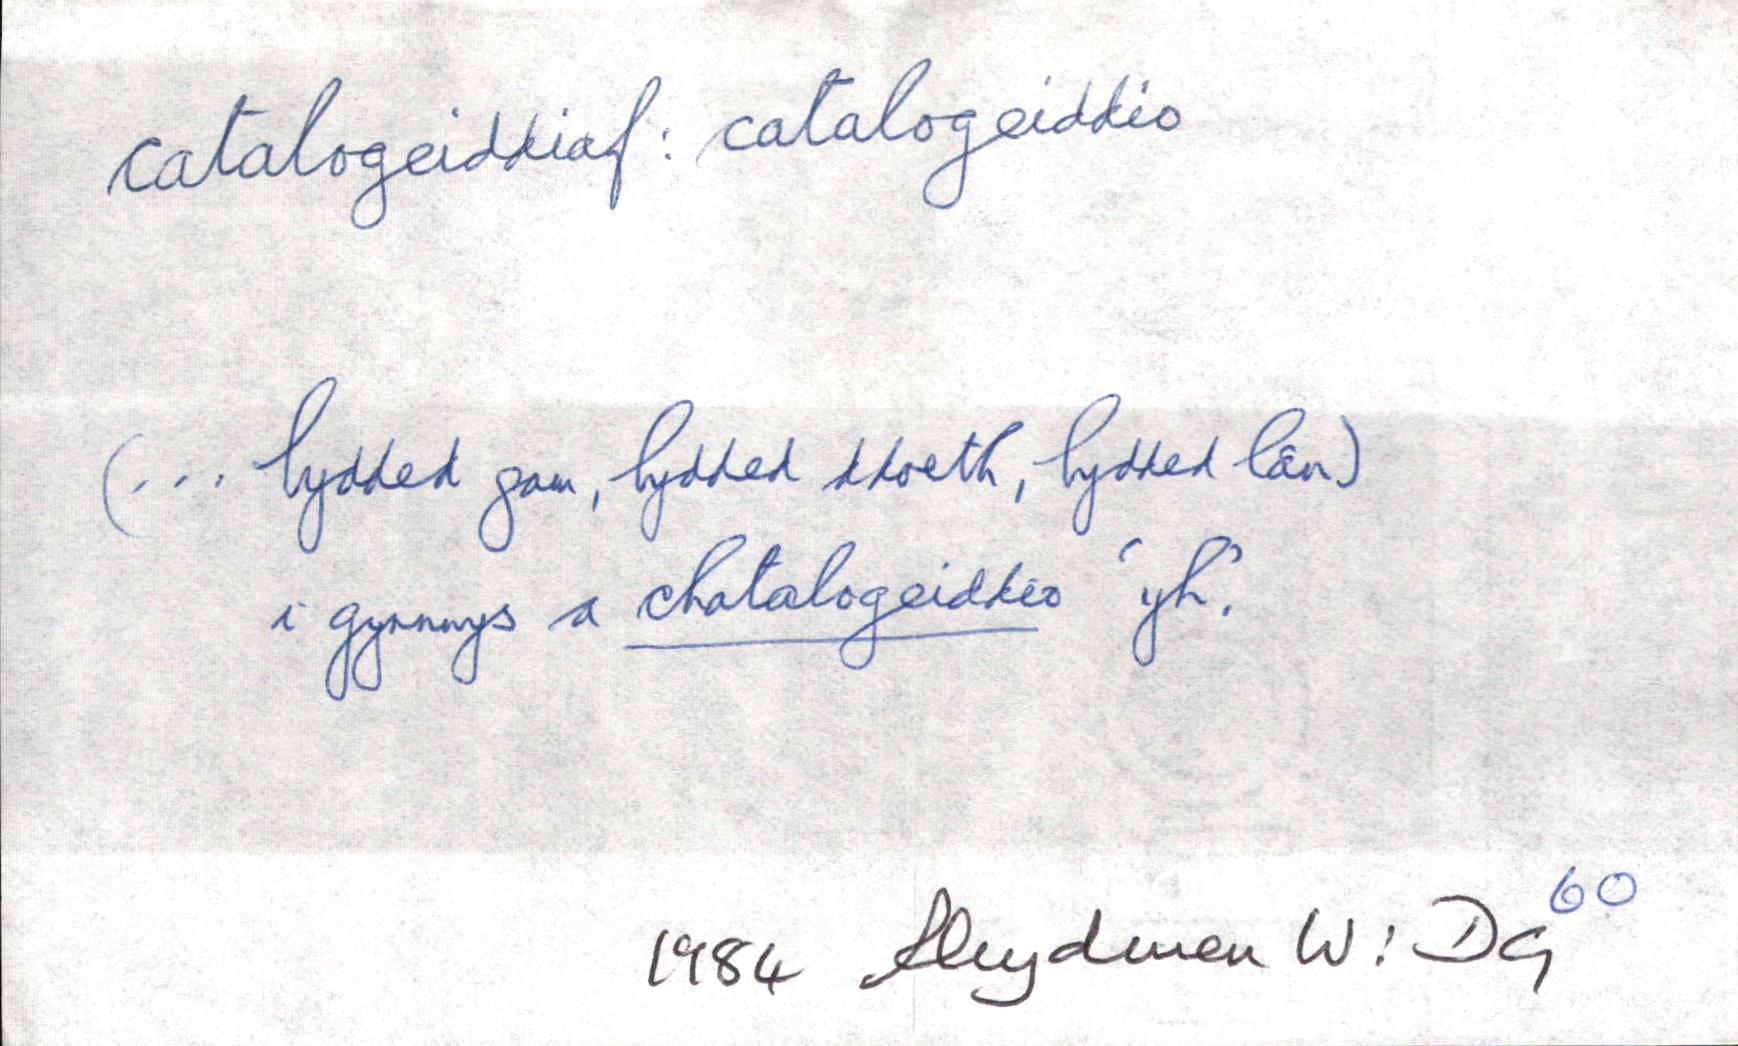 catalogeiddiaf: catalogeiddio
(... bydded gam, bydded ddoeth, bydded lân)
i gynnwys a chatalogeiddio 'yh'.
1984 Rhydwen W: DG 60